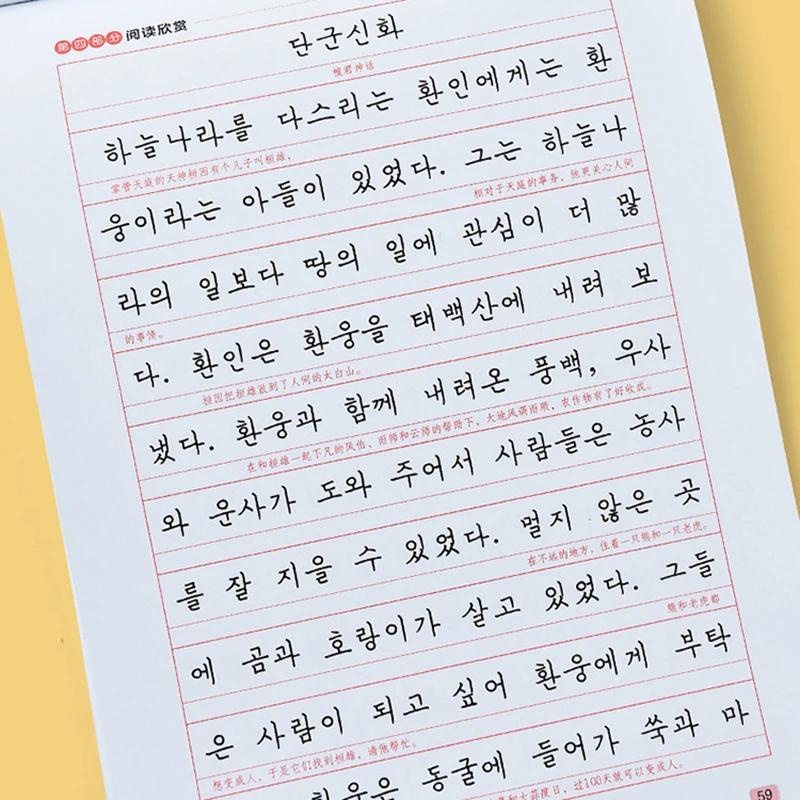 第四部分 阅读欣赏
단군신화
檀君神话
하늘나라를 다스리는 환인에게는 환
掌管天庭的天神桓因有个儿子叫桓雄。
웅이라는 아들이 있었다. 그는 하늘나
相对于天庭的事务，他更关心人间
라의 일보다 땅의 일에 관심이 더 많
的事情。
다. 환인은 환웅을 태백산에 내려 보
桓因把桓雄派到了人间的太白山。
냈다. 환웅과 함께 내려온 풍백, 우사
在和桓雄一起下凡的风伯、雨师和云师的帮助下，大地风调雨顺，农作物有了好收成。
와 운사가 도와 주어서 사람들은 농사
를 잘 지을 수 있었다. 멀지 않은 곳
在不远的地方，住着一只熊和一只老虎。
에 곰과 호랑이가 살고 있었다. 그들
熊和老虎都
은 사람이 되고 싶어 환웅에게 부탁
想变成人，于是它们找到桓雄，请他帮忙。
환웅은 동굴에 들어가 쑥과 마
和大蒜度日，过100天就可以变成人。
59